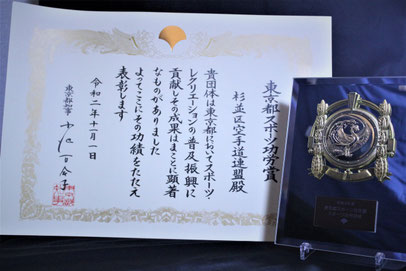 東京都スポーツ功労賞
杉並区空手道連盟殿
貴団体は東京都においてスポーツ・
レクリエーションの普及振興に
貢献しその成果はまことに顕著
なものがありました
よってここにその功績をたたえ
表彰します
令和二年十一月一日
東京都知事 小池百合子